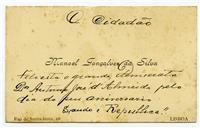 O Cidadão
Manoel Gonçalves da Silva
Felicita o grande democrata
Dr. Antonio José d'Almeida pelo
dia do seu aniversario
Saude e Republica."
Rua de Santa Justa,
LISBOA